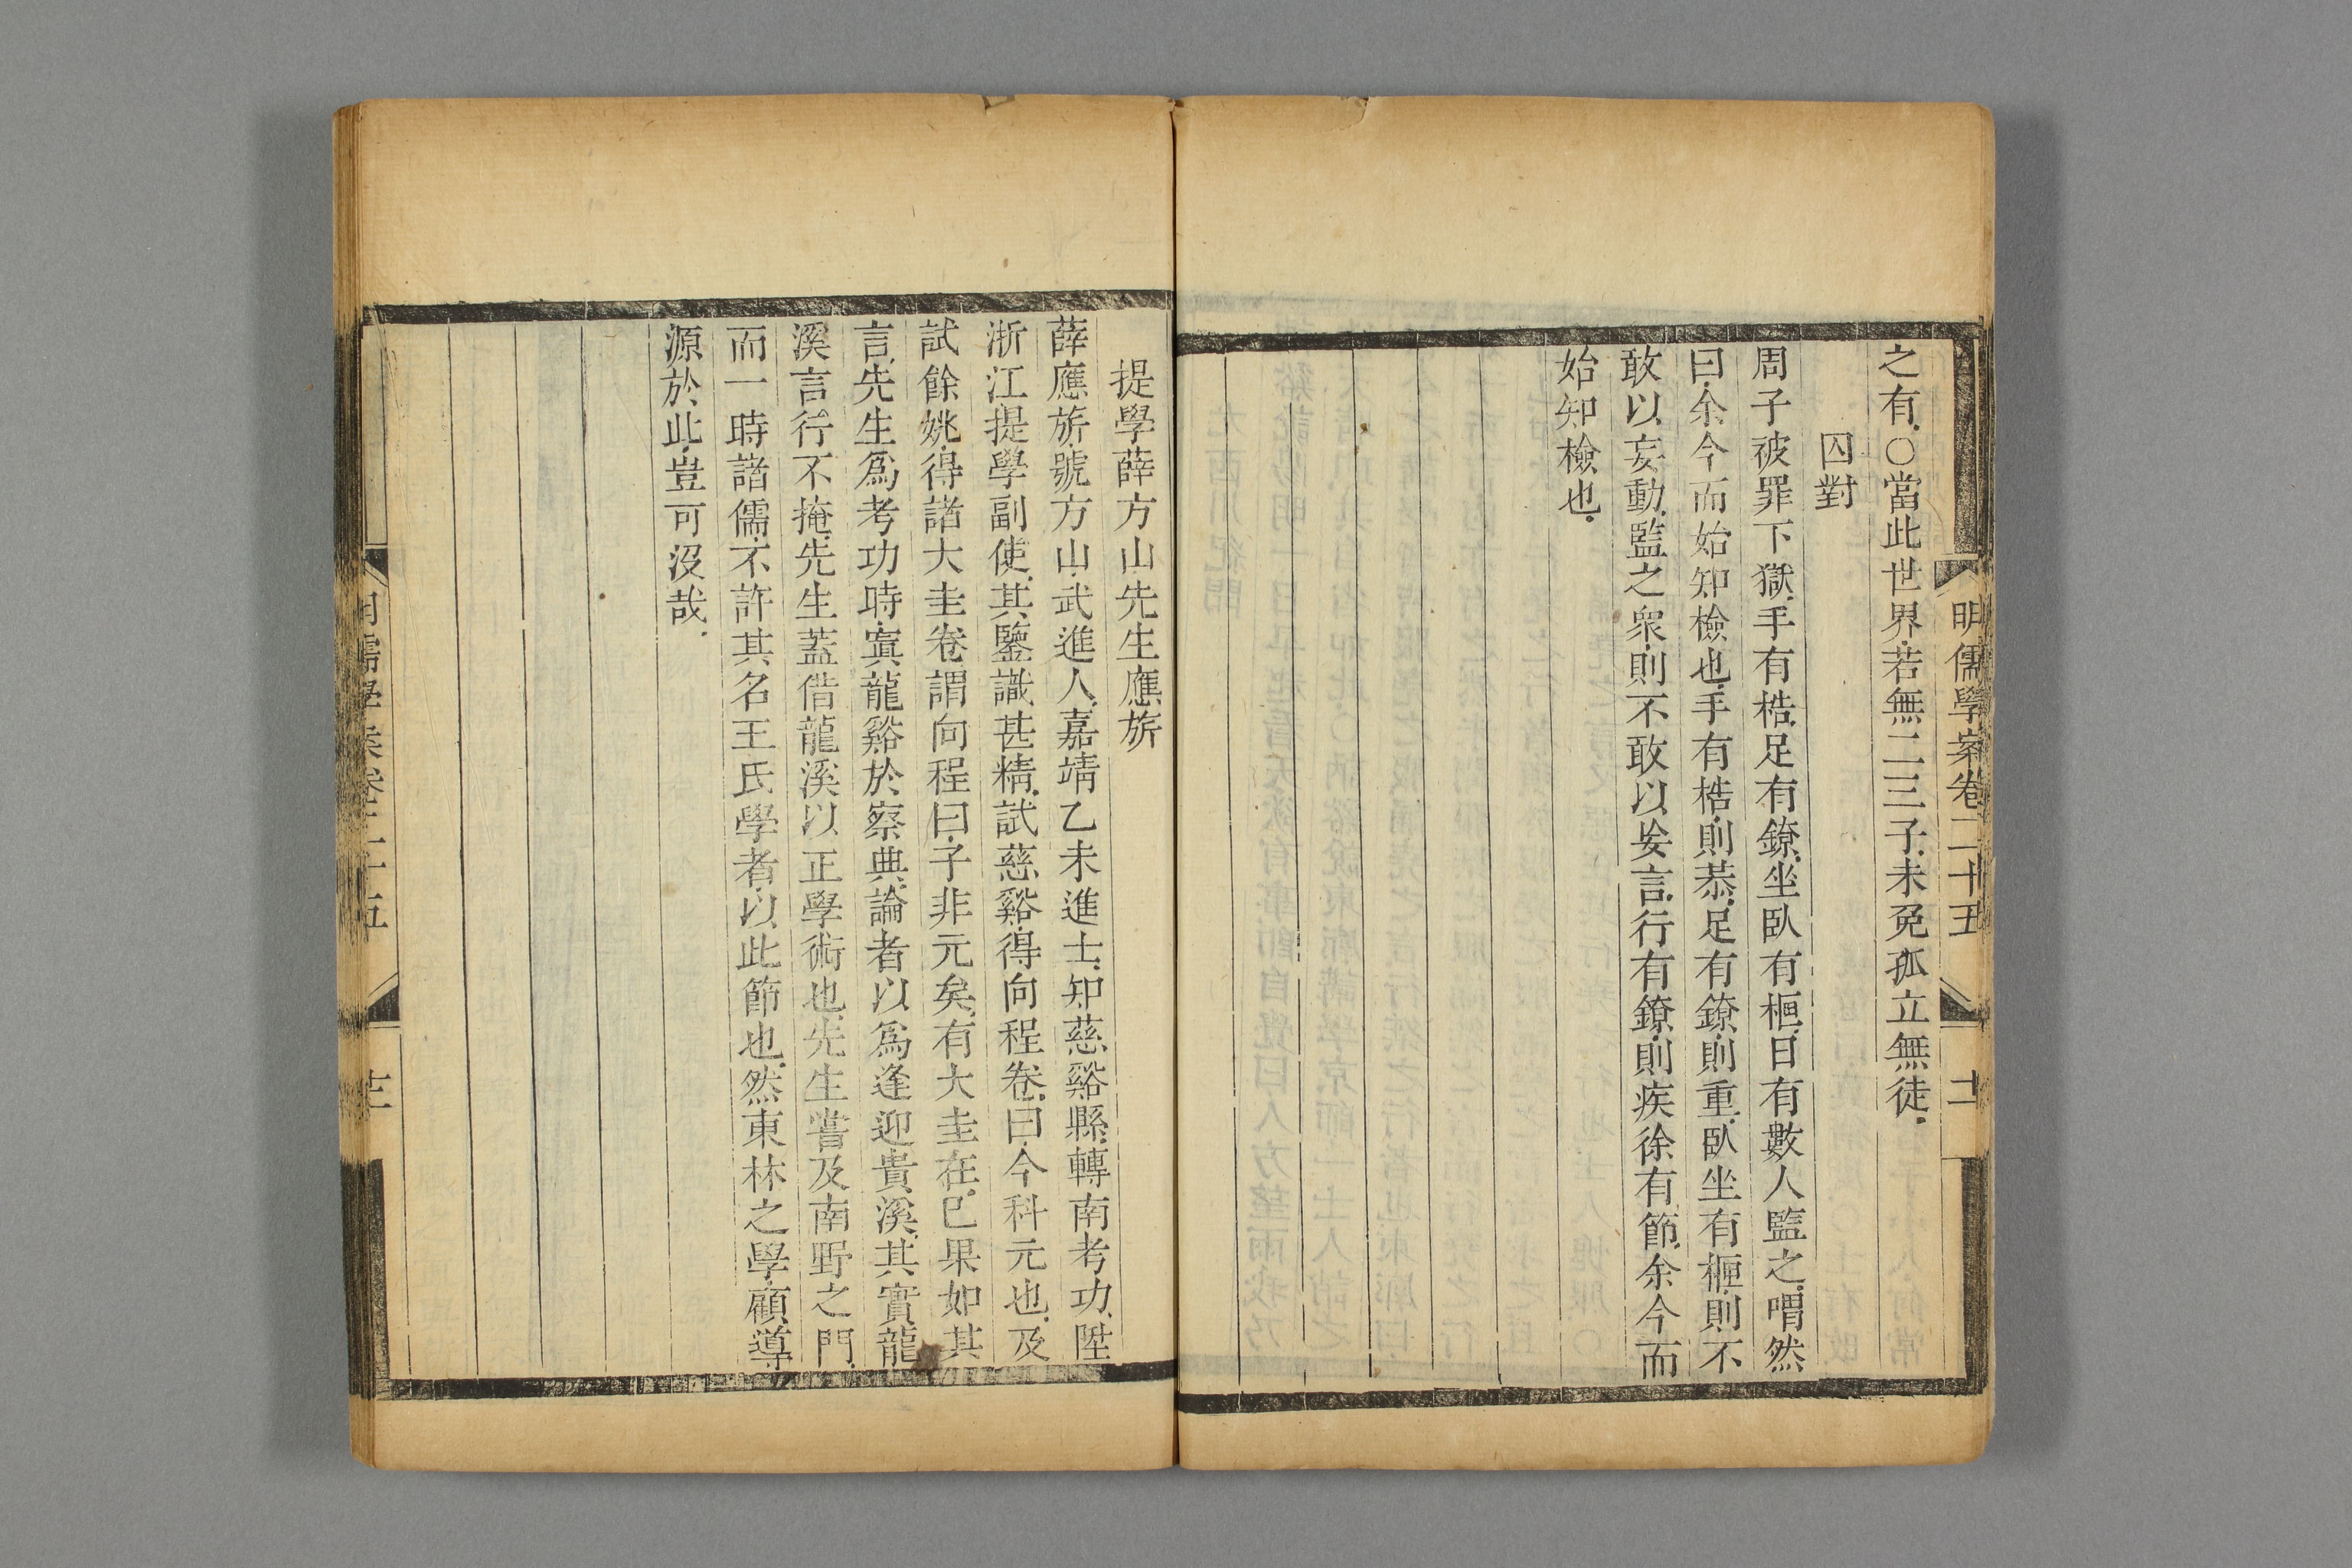 明儒學案卷二十五
十二
之有○當此世界若無二三子未免孤立無徒
囚對
周子被罪下獄手有梏足有鐐坐臥有柙日有數人監之喟然
曰余今而始知檢也手有梏則恭足有鐐則重臥坐有柙則不
敢以妄動監之衆則不敢以妄言行有鐐則疾徐有節余今而
始知檢也
提學薛方山先生應旂
薛應旂號方山武進人嘉靖乙未進士知慈谿縣轉南考功陞
浙江提學副使其鑒識甚精試慈谿得向程卷曰今科元也及
試餘姚得諸大圭卷謂向程曰子非元矣有大圭在已果如其
言先生爲考功時寘龍谿於察典論者以爲逢迎貴溪其實龍
溪言行不掩先生蓋借龍溪以正學術也先生嘗及南野之門
而一時諸儒不許其名王氏學者以此節也然東林之學顧導
源於此豈可沒哉
明儒學案卷二十五